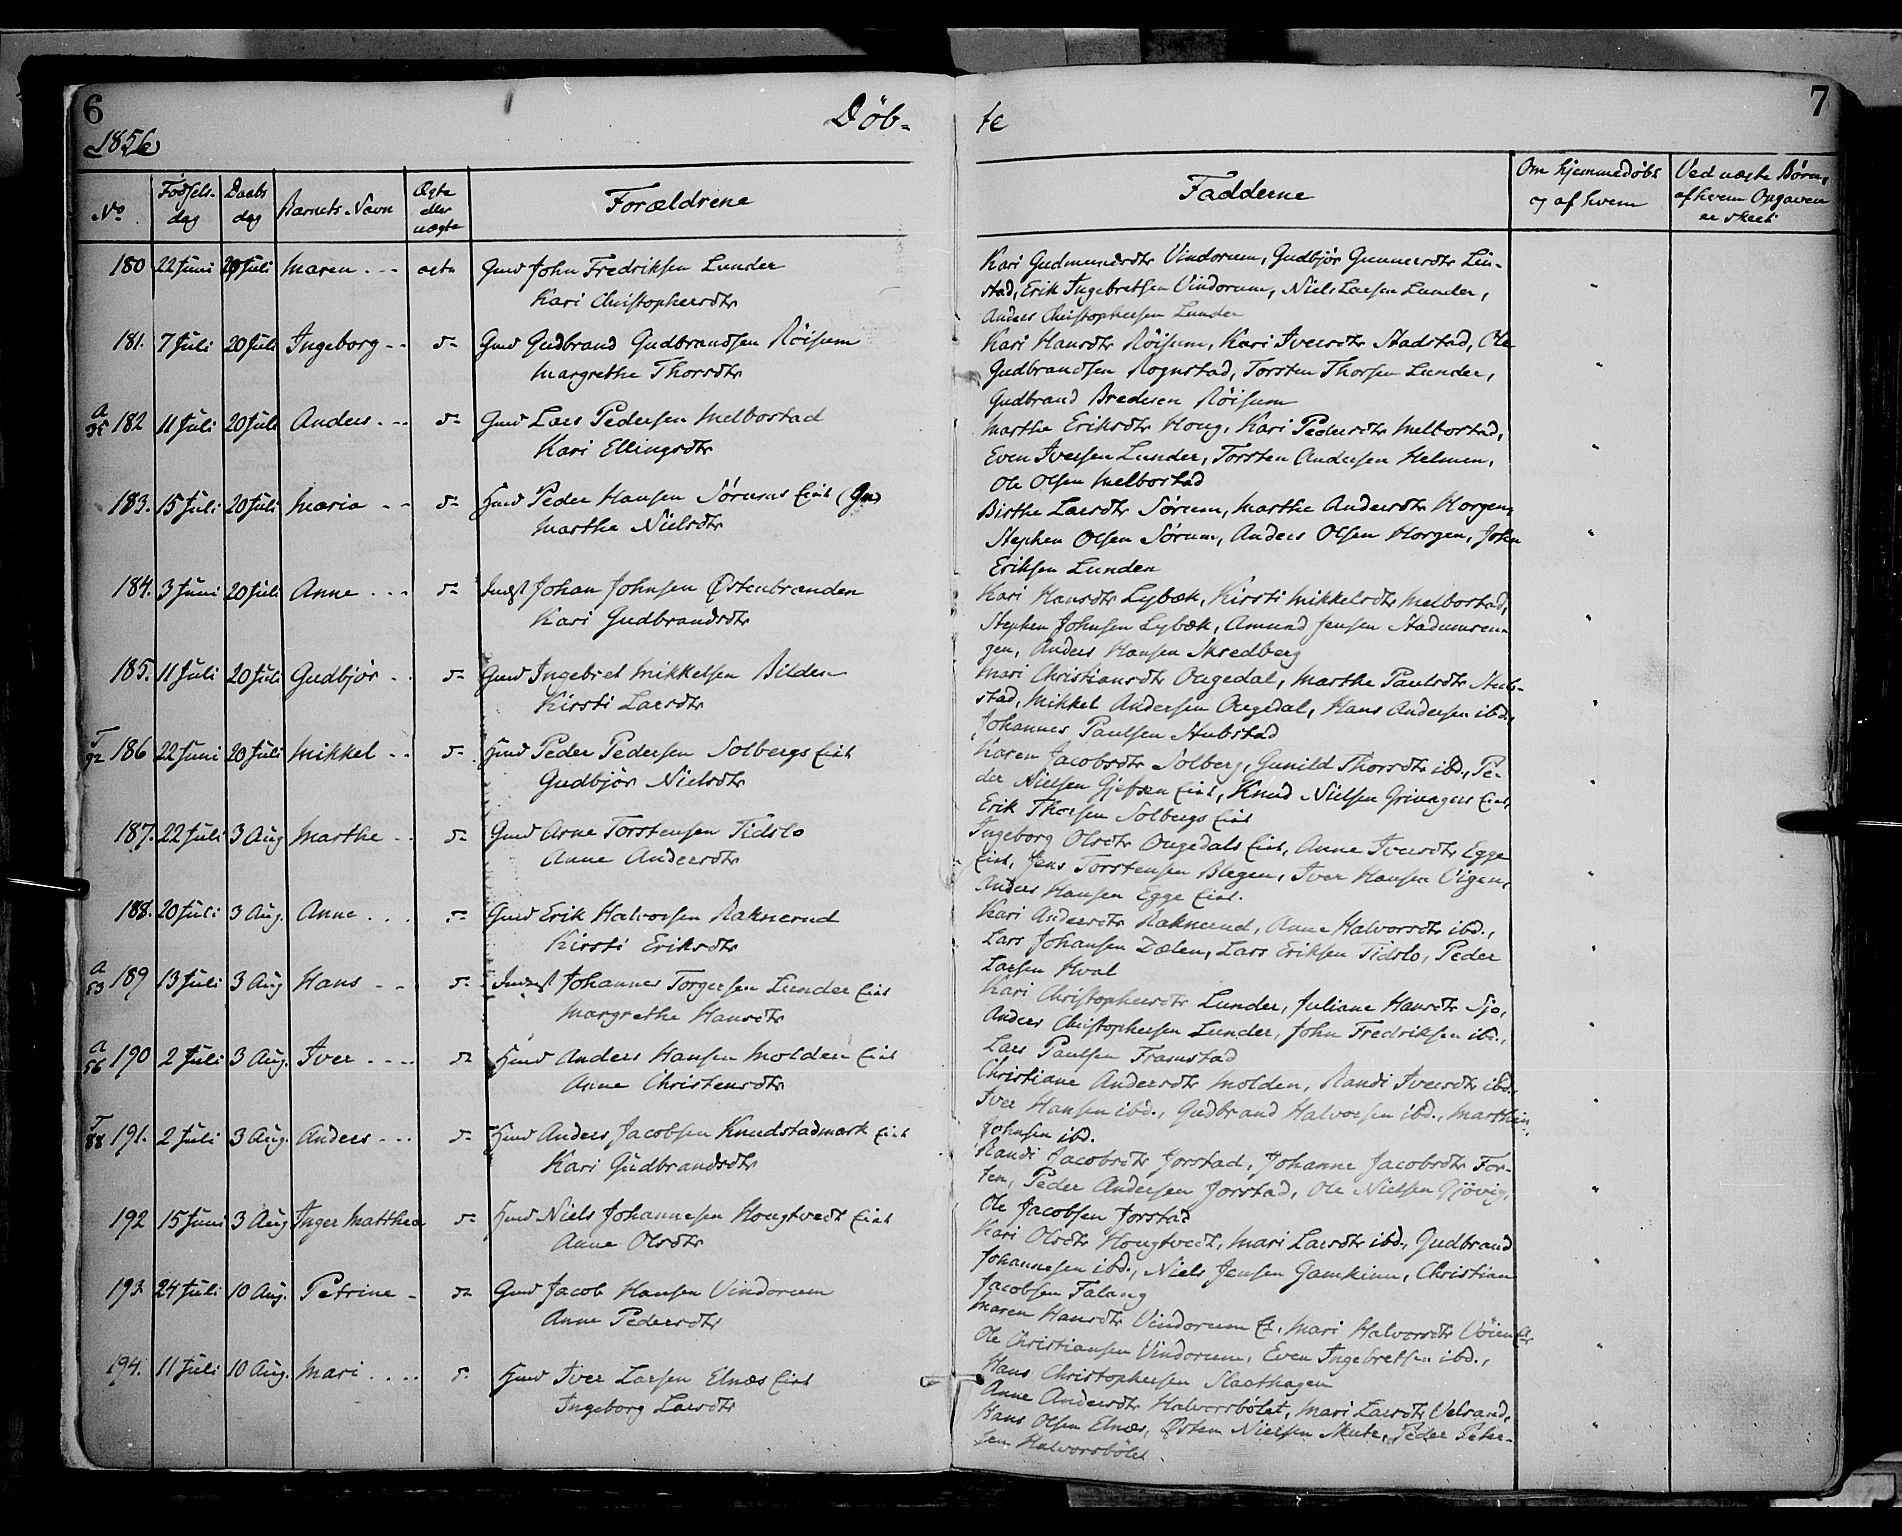 6
1856
Døb-
No
Fødsels-
dag
Daabs
dag
Barnets Navn
Ægte
eller
uægte
Forældrene
180 22 Juni 20 Juli Maren ægte Gmd John Fredriksen Lunder
Kari Christophersdtr
181. 7 Juli 20 Juli Ingeborg do Gmd Gudbrand Gudbrandsen Röisum
Margrethe Thorsdtr
A 35 182 11 Juli 20 Juli Anders do Gmd Lars Pedersen Melbostad
Kari Ellingsdtr
183. 15 Juli 20 Juli Maria do Hmd Peder Hansen Sørums Eiet (Gm)
Marthe Nielsdtr
184. 3 Juni 20 Juli Anne do Inderst Johan Johnsen Østenbrænden
Kari Gudbrandsdtr
185. 11 Juli 20 Juli Gudbjør do Gmd Ingebret Mikkelsen Bilden
Kirsti Larsdtr
T 92 186 22 Juni 20 Juli Mikkel do Hmd Peder Pedersen Solbergs Eiet
Gudbjør Nielsdtr
187. 22 Juli 3 Aug Marthe do Gmd Arne Torstensen Tidslo
Anne Andersdtr
188. 20 Juli 3 Aug. Anne do Gmd Erik Halvorsen Raknerud
Kirsti Eriksdtr
A 53 189 13 Juli 3 Aug Hans do Inderst Johannes Torgersen Lunder Eiet
Margrethe Hansdtr
A 56 190 2 Juli 3 Aug. Iver do Hmd Anders Hansen Molden Eiet
Anne Christensdtr
T 88 191. 2 Juli 3 Aug. Anders do Hmd Anders Jacobsen Knudstadmark Eiet
Kari Gudbrandsdtr
192 15 Juni 3 Aug Inger Matthea do Hmd Niels Johannesen Hougtvedt Eiet
Anne Olsdtr
193. 24 Juli 10 Aug. Petrine do Gmd Jacob Hansen Vindorum
Anne Pedersdtr
194. 11 Juli 10 Aug. Mari do Hmd Iver Larsen Elnæs Eiet
Ingeborg Larsdtr
7
te
Fadderne
Om hjemmedøbt
og af hvem
Ved uægte Børn,
af hvem Opgaven
er skeet
Kari Gudmundsdtr Vindorum, Gudbjør Gunnersdtr Lin-
stad, Erik Ingebretsen Vindorum, Niels Larsen Lunder,
Anders Christophersen Lunder
Kari Hansdtr Röisum, Kari Iversdtr Stadstad, Ole
Gudbrandsen Rognstad, Torsten Thorsen Lunder,
Gudbrand Bredesen Röisum
Marthe Eriksdtr Houg, Kari Pedersdtr Melbostad,
Even Iversen Lunder, Torsten Andersen Helmen,
Ole Olsen Melbostad
Birthe Larsdtr Sørum, Marthe Andersdtr Horgen,
Stephen Olsen Sørum, Anders Olsen Horgen, John
Eriksen Lunden
Kari Hansdtr Lybæk, Kirsti Mikkelsdtr Melbostad,
Stephen Johnsen Lybæk, Amund Jensen Stadumsen-
gen, Anders Hansen Skredberg
Mari Christiansdtr Ougedal, Marthe Paulsdtr Stub-
stad, Mikkel Andersen Ougedal, Hans Andersen ibd.,
Johannes Paulsen Stubstad
Karen Jacobsdtr Solberg, Gunild Thorsdtr ibd., Pe-
der Nielsen Gjefsen Eiet, Knud Nielsen Grinagers Eiet,
Erik Thorsen Solbergs Eiet
Ingeborg Olsdtr Ougedals Eiet, Anne Iversdtr Egge
Eiet, Jens Torstensen Blegen, Iver Hansen Vigen,
Anders Hansen Egge Eiet.
Kari Andersdtr Raknerud, Anne Halvorsdtr ibd.,
Lars Johansen Dælen, Lars Eriksen Tidslo, Peder
Larsen Hval
Kari Christophersdtr Lunder, Juliane Hansdtr Sjo,
Anders Christophersen Lunder, John Fredriksen ibd.,
Lars Paulsen Framstad
Christiane Andersdtr Molden, Randi Iversdtr ibd.
Iver Hansen ibd., Gudbrand Halvorsen ibd., Marthin
Johnsen ibd.
Randi Jacobsdtr Jorstad, Johanne Jacobsdtr For-
ten, Peder Andersen Jorstad, Ole Nielsen Gjövig,
Ole Jacobsen Jorstad
Kari Olsdtr Hougtvedt, Mari Larsdtr ibd., Gudbrand
Johannesen ibd., Niels Jensen Gamkinn, Christian
Jacobsen Falang
Maren Hansdtr Vindorum E., Mari Halvorsdtr Vöien E.
Ole Christiansen Vindorum, Even Ingebretsen ibd.,
Hans Christophersen Slaathagen
Anne Andersdtr Halvorsbölet, Mari Larsdtr Velsand,
Hans Olsen Elnæs, Østen Nielsen Skute, Peder Peter-
sen Halvorsbölet